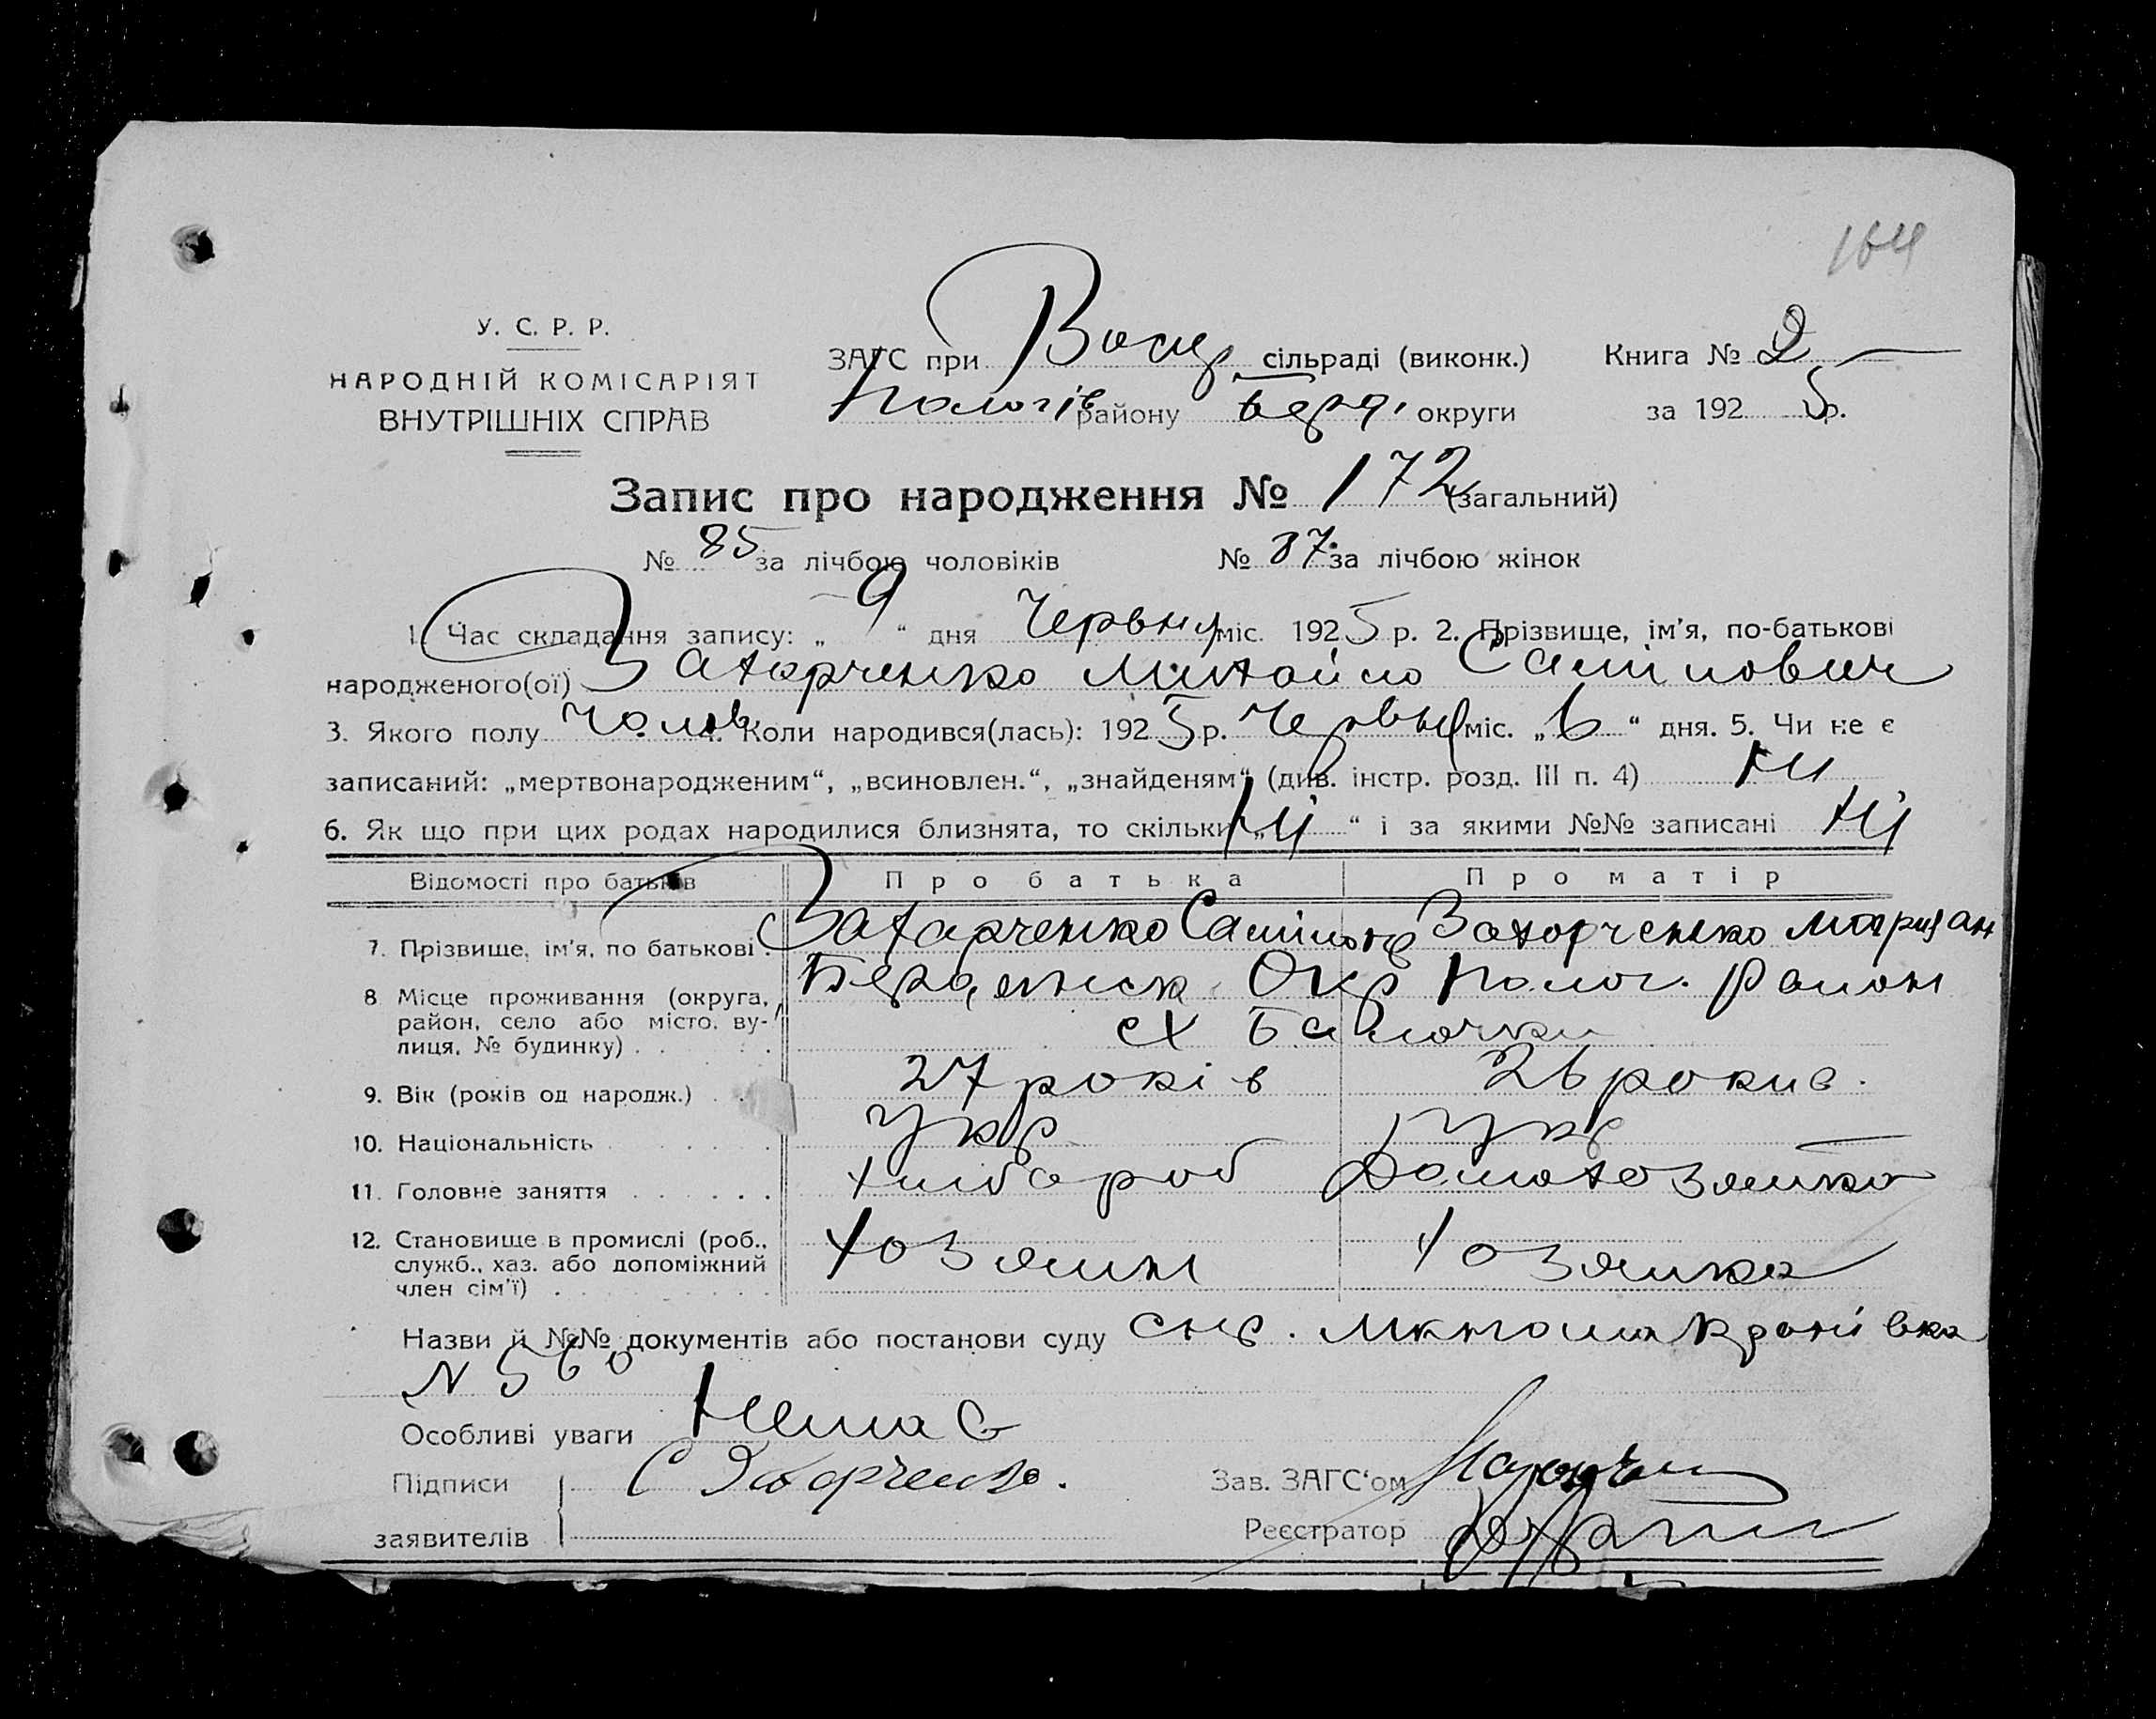 164
У. С. Р. Р.
НАРОДНІЙ КОМІСАРІЯТ
ВНУТРІШНІХ СПРАВ
ЗАГС при Воскр сільраді (виконк.)
Пологів району Бердя. округи
Книга № 2
за 1925 р.
Запис про народження № 172 (загальний)
№ 85 за лічбою чоловіків № 87 за лічбою жінок
1. Час складання запису: „ 9 “ дня Червня міс. 1925 р. 2. Прізвище, ім’я, по-батькові
народженого(ої) Захарченко Михайло Самілович
3. Якого полу Чолов 4. Коли народився(лась): 1925 р. Червня міс. „6“ дня. 5. Чи не є
записаний: „мертвонародженим“, „всиновлен.“, „знайденям“ (див. інстр. розд. III п. 4) Ни
6. Як що при цих родах народилися близнята, то скільки „Ні“ і за якими №№ записані Ні
Відомості про батьків Про батька Про матір
7. Прізвище, ім’я, по батькові . Захарченко Самійло Захорченко Мария
8 Місце проживання (округа, район, село або місто, вулиця, № будинку) . . Бердянск Окр Полог. район
сх Балочки
9. Вік (років од народж.) . . 27 років 26 рокив.
10. Національність . . . . Укр Укр
11. Головне заняття . . . . . . Хлібороб Домохозяйка
12. Становище в промислі (роб., служб., хаз. або допоміжний член сім’ї) . . . . Хозяин Хозяйка
Назви й №№ документів або постанови суду
N 560
Особливі уваги Нема Є
Підписи С Захарченко.
заявителів
Зав. ЗАГС‘ом
Реєстратор